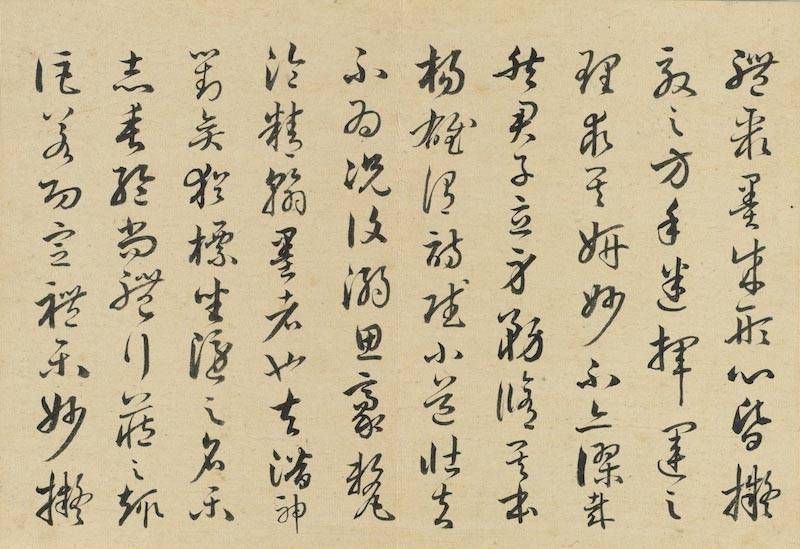 體聚墨成形心昏擬
效之方手迷揮運之
理求其妍妙不亦謬哉
然君子立身務脩其本
楊雄謂詩賦小道壯夫
不為況復溺思豪氂
淪精翰墨者也夫潛神
對奕猶標坐隱之名樂
志垂綸尚體行藏之趣
詎若功宣禮樂妙擬